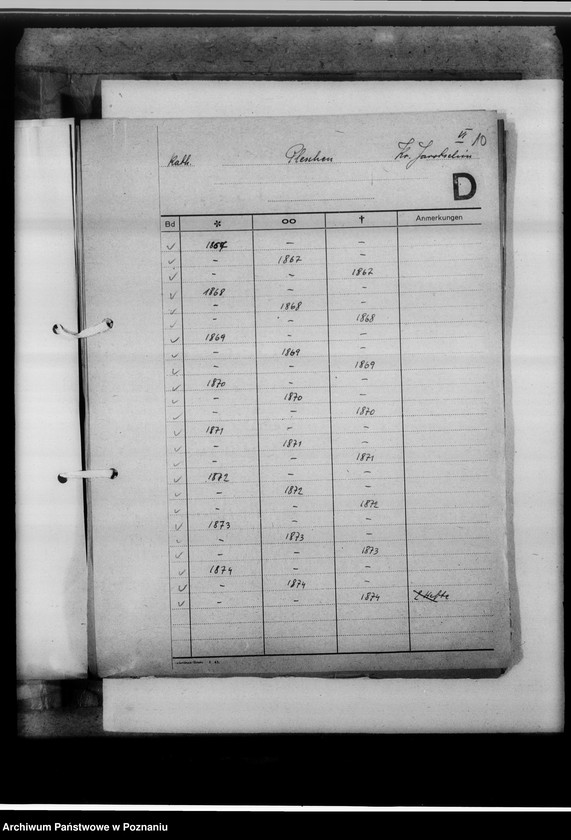 VI 10
Kath. Pleschen Kr. Jarotschin
D
Bd * oo † Anmerkungen
✓ 1867 – –
✓ – 1867 –
✓ – – 1867
✓ 1868 – –
✓ – 1868 –
✓ – – 1868
✓ 1869 – –
✓ – 1869 –
✓ – – 1869
✓ 1870 – –
✓ – 1870 –
✓ – – 1870
✓ 1871 – –
✓ – 1871 –
✓ – – 1871
✓ 1872 – –
✓ – 1872 –
✓ – – 1872
✓ 1873 – –
✓ – 1873 –
✓ – – 1873
✓ 1874 – –
✓ – 1874 –
✓ – – 1874 2 Hefte
Archiwum Państwowe w Poznaniu